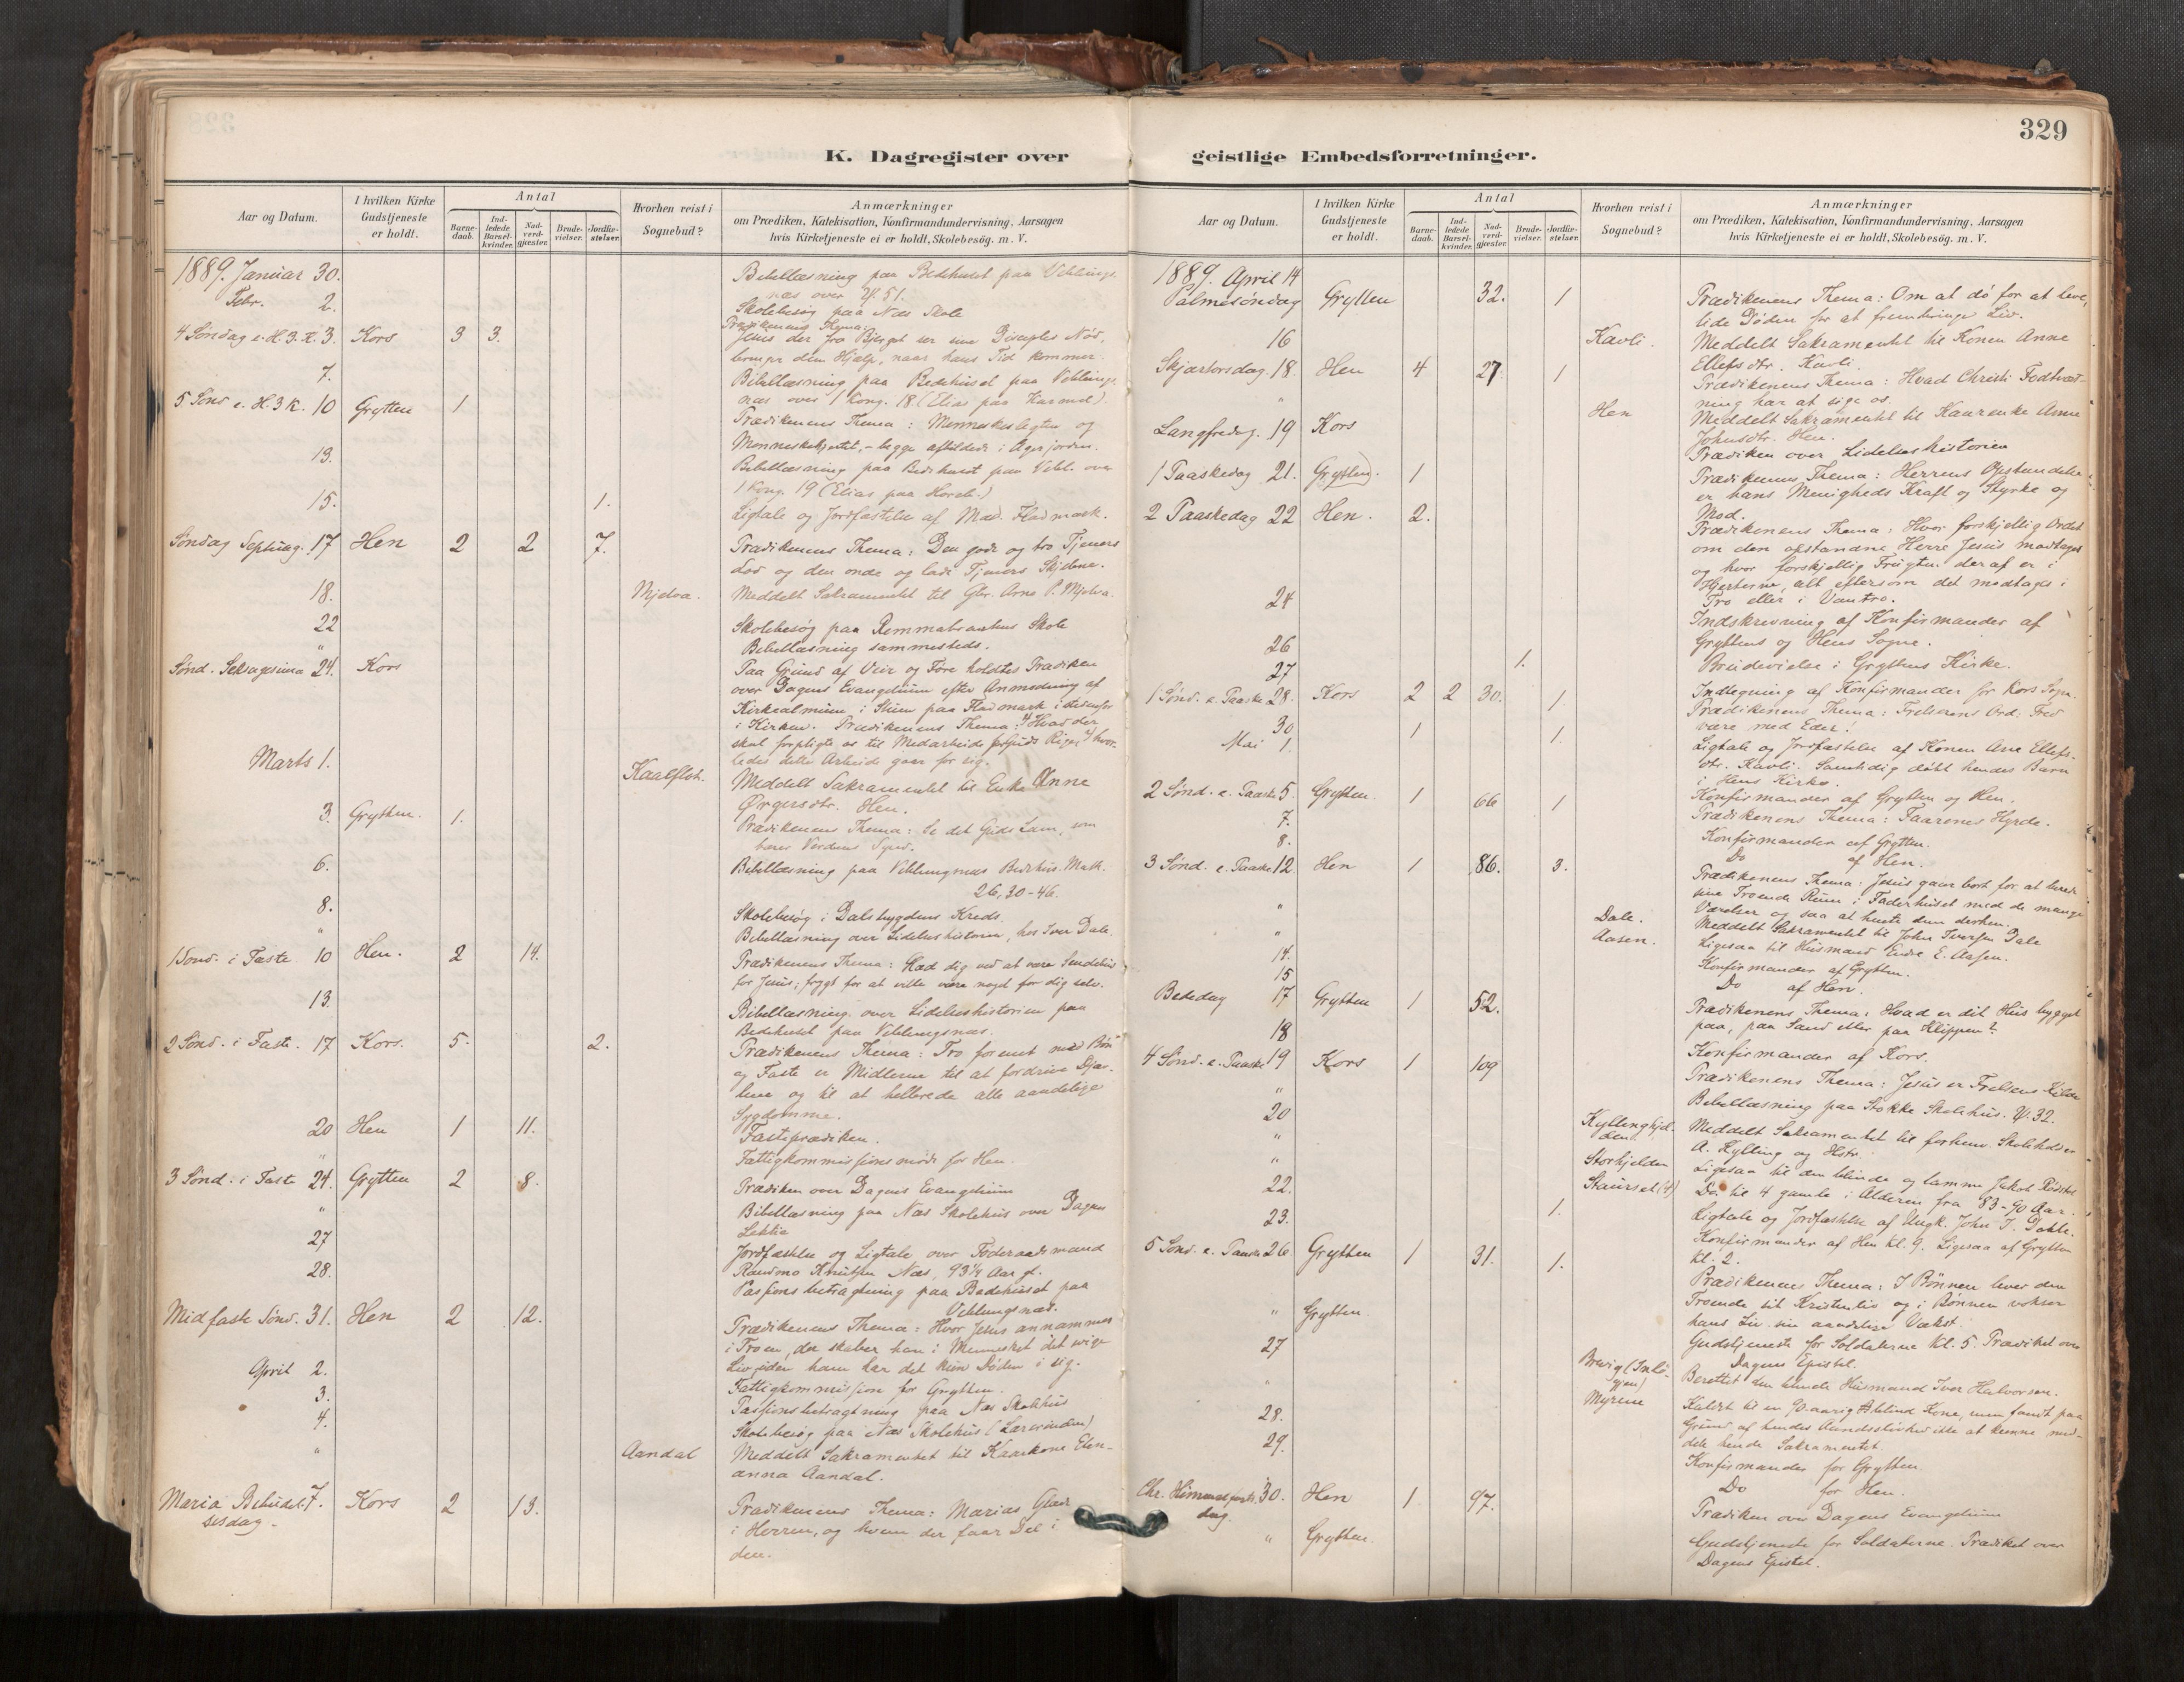 329
K. Dagregister over geistlige Embedsforretninger.
Aar og Datum.
I hvilken Kirke Gudstjeneste er holdt.
Antal
Barnedaab.
Indledede Barselkvinder.
Nadverdgjæster.
Brudevielser.
Jordfæstelser.
Hvorhen reist i Sognebud?
Anmærkninger
om Prædiken, Katekisation, Konfirmandundervisning, Aarsagen
hvis Kirketjeneste ei er holdt, Skolebesøg. m. V.
1889. Januar 30. Bibellæsning paa Bedehuset paa Veblungs-
næs over Ψ. 51.
Febr. 2. Skolebesøg paa Næs Skole
4 Søndag e. H. 3. K. 3. Kors 3 3. Prædikenens Thema:
Jesus der fra Bjerget ser sine Disciples Nød,
bringer dem Hjælp, naar hans Tid kommer.
7. Bibellæsning paa Bedehuset paa Veblungs-
næs over 1 Kong. 18 (Elias paa Karmel).
5 Sønd e. H. 3 K. 10 Grytten 1 Prædikenens Thema: Menneskeslægten og
Menneskehjertet, - begge afbildede i Agerjorden.
13. Bibellæsning paa Bedehuset paa Vebl. over
1 Kong. 19 (Elias paa Horeb.)
15. 1. Ligtale og Jordfæstelse af Mad. Fladmark.
Søndag Septuag. 17 Hen 2 2 7. Prædikenens Thema: Den gode og tro Tjeners
Lod og den onde og lade Tjeners Skjebne.
18. Mjelva. Meddelt Sakramentet til Gbr. Arne P. Mjelva.
22 Skolebesøg paa Remmabraatens Skole
" Bibellæsning sammesteds.
Sønd. Seksagesima 24. Kors Paa Grund af Veir og Føre holdtes Prædiken
over Dagens Evangelium efter Anmodning af
Kirkealmuen i Stuen paa Fladmark istedenfor
i Kirken. Prædikenens Thema: Hvad der
skal forpligte os til Medarbeide for Guds Rige, hvor-
ledes dette Arbeide gaar for sig.
Marts 1. Kaalflot. Meddelt Sakramentet til Enke Anne
Ørgersdtr. Hen.
3. Grytten. 1. Prædikenens Thema: Se det Guds Lam, som
bærer Verdens Synd.
6. Bibellæsning paa Veblungnæs Bedehus. Math.
26, 30-46.
8. Skolebesøg i Dalsbygdens Kreds.
" Bibellæsning over Lidelseshistorien, hos Iver Dale.
1 Sønd. i Faste 10 Hen. 2 14. Prædikenens Thema: Glæd dig ved at være Sendebud
for Jesus; frygt for at ville være noget for dig selv.
13. Bibellæsning over Lidelseshistorien paa
Bedehuset paa Veblungsnæs.
2 Sønd. i Faste. 17 Kors. 5. 2. Prædikenens Thema: Tro forenet med Bøn
og Faste er Midlerne til at fordrive Djæv-
lene og til at helbrede alle aandelige
Sygdomme.
20 Hen 1 11. Fasteprædiken.
" Fattigkommissionsmøde for Hen.
3 Sønd. i Faste 24. Grytten 2 8. Prædiken over Dagens Evangelium
" Bibellæsning paa Næs Skolehus over Dagens
Lektie
27 Jordfæstelse og Ligtale over Føderaadsmand
Randmo Knutsen Næs, 93¼ Aar gl.
28. Passionsbetragtning paa Bedehuset paa
Veblungsnæs.
Midfaste Sønd. 31. Hen 2 12. Prædikenens Thema: Hvor Jesus annammes
i Troen, der skaber han i Mennesket det evige
Liv, uden ham har det kun Døden i sig.
April 2. Fattigkommission for Grytten.
3. Passionsbetragtning paa Næs Skolehus
4. Skolebesøg paa Næs Skolehus (Lærerinden)
" Aandal Meddelt Sakramentet til Kaarkone Elen-
anna Aandal.
Maria Bebudel- 7. Kors 2 13. Prædikenens Thema: Marias Glæde
sesdag. i Herren, og hvem der faar Del i
den.
Aar og Datum.
I hvilken Kirke Gudstjeneste er holdt.
Antal
Barnedaab.
Indledede Barselkvinder.
Nadverdgjæster.
Brudevielser.
Jordfæstelser.
Hvorhen reist i Sognebud?
Anmærkninger
om Prædiken, Katekisation, Konfirmandundervisning, Aarsagen
hvis Kirketjeneste ei er holdt, Skolebesøg. m. V.
1889. April 14
Palmesøndag Grytten 32. 1 Prædikenens Thema: Om at dø for at leve,
lide Døden for at frembringe Liv.
16 Kavli. Meddelt Sakramentet til Konen Anne
Ellefsdtr. Kavli.
Skjærtorsdag. 18. Hen 4 27. 1 Prædikenens Thema: Hvad Christi Fodtvæt-
ning har at sige os.
" Hen Meddelt Sakramentet til Kaarenke Anne
Johnsdtr. Hen.
Langfredag. 19 Kors Prædiken over Lidelseshistorien
1 Paaskedag 21. Grytten. 1 Prædikenens Thema: Herrens Opstandelse
er hans Menigheds Kraft og Styrke og
Mod.
2 Paaskedag 22 Hen. 2. Prædikenens Thema: Hvor forskjellig Ordet
om den opstandne Herre Jesus modtages
og hvor forskjellig Frugten deraf er i
Hjerterne, alt eftersom det modtages i
Tro eller i Vantro.
24 Indskrivning af Konfirmander af
Gryttens og Hens Sogne.
26 1. Brudevielse i Gryttens Kirke.
27 Indtegning af Konfirmander for Kors Sogn.
1 Sønd. e. Paaske 28. Kors 2 2 30. 1. Prædikenens Thema: Frelserens Ord: Fred
være med Eder!
30 1 1. Ligtale og Jordfæstelse af Konen Ane Ellefs-
dtr. Kavli. Samtidig døbt hendes Barn
i Hens Kirke.
Mai 1. Konfirmander af Grytten og Hen.
2 Sønd. e. Paaske 5. Grytten. 1 66 1 Prædikenens Thema: Faarenes Hyrde.
7. Konfirmander af Grytten.
8. Do af Hen.
3 Sønd. e. Paaske. 12 Hen 1 86. 3. Prædikenens Thema: Jesus gaar bort for at berede
sine Troende Rum i Faderhuset med de mange
Værelser og saa at hente dem derhen.
" Dale. Meddelt Sakramentet til John Iversen Dale
" Aasen. Ligesaa til Husmand Endre E. Aasen.
14. Konfirmander af Grytten.
15 Do af Hen.
Bededag 17 Grytten 1 52. Prædikenens Thema: Hvad er dit Hus bygget
paa, paa Sand eller paa Klippen?
18 Konfirmander af Kors.
4 Sønd. e. Paaske 19 Kors 1 109 Prædikenens Thema: Jesus er Frelsens Kilde
" Bibellæsning paa Stokke Skolehus. Ψ. 32.
20 Kyllinghjel- Meddelt Sakramentet til forhenv. Skoleholder
den. A. Kylling og Hstr.
" Storhjelden Ligesaa til den blinde og lamme Jakob Rødstøl
" Staurset (4) Do. til 4 gamle i Alderen fra 83-90 Aar.
22. 1. Ligtale og Jordfæstelse af Ungk. John J. Dahle.
23. Konfirmander af Hen kl. 9. Ligesaa af Grytten
kl. 2.
5 Sønd. e. Paaske 26. Grytten 1 31. 1. Prædikenens Thema: I Bønnen lever den
Troende sit Kristenliv og i Bønnen vokser
hans Liv sin aandelige Vækst.
" Grytten. Gudstjeneste for Soldaterne kl. 5. Prædiket over
Dagens Epistel.
27 Brevig Berettet den blinde Husmand Iver Halvorsen.
" Myrene Kaldt til en 90-aarig blind Kone, men fandt paa
Grund af hendes Aandssløvhed ikke at kunne med-
dele hende Sakramentet.
28. Konfirmander for Grytten
29. Do for Hen.
Chr. Himmelfarts- 30. Hen 1 97. Prædiken over Dagens Evangelium
dag.
" Grytten. Gudstjeneste for Soldaterne. Prædiket over
Dagens Epistel.